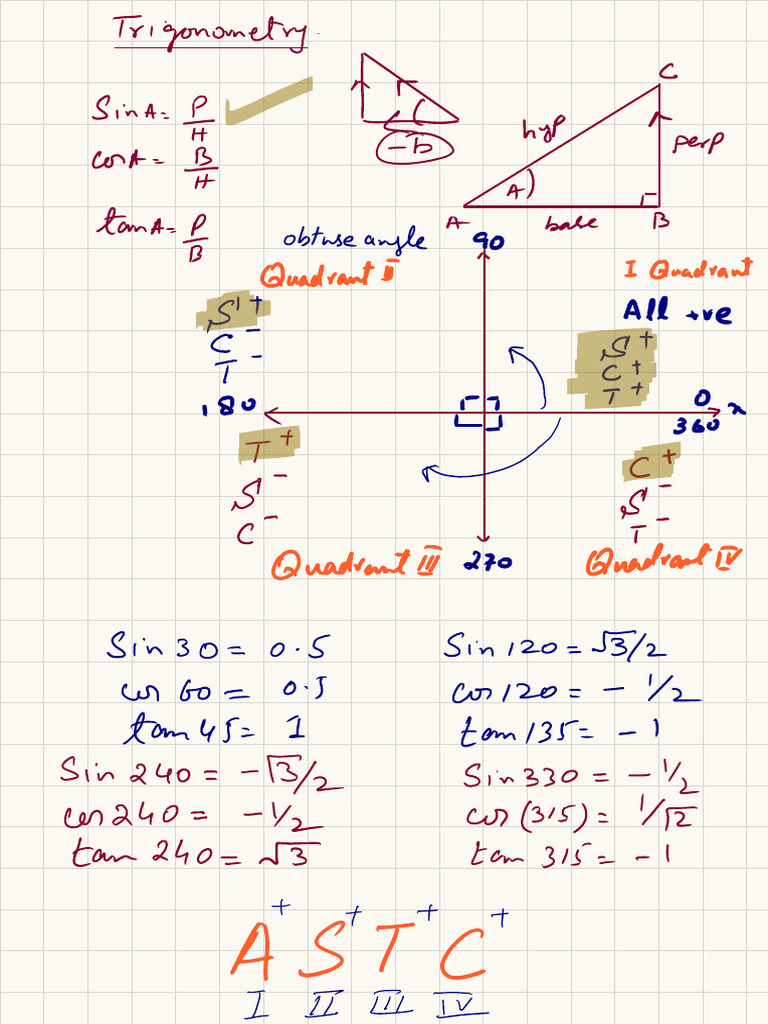 Trigonometry
Sin A = P/H
cos A = B/H
tan A = P/B
-b
C
hyp
perp
A
A
base
B
obtuse angle
90
Quadrant II
I Quadrant
All +ve
S +
C -
T -
S +
C +
T +
180
0
360
x
T +
S -
C -
C +
S -
T -
Quadrant III
270
Quadrant IV
Sin 30 = 0.5
cos 60 = 0.5
tan 45 = 1
Sin 120 = √3/2
cos 120 = - 1/2
tan 135 = - 1
Sin 240 = -√3/2
cos 240 = -1/2
tan 240 = √3
Sin 330 = - 1/2
cos (315) = 1/√2
tan 315 = - 1
A+ S+ T+ C+
I II III IV